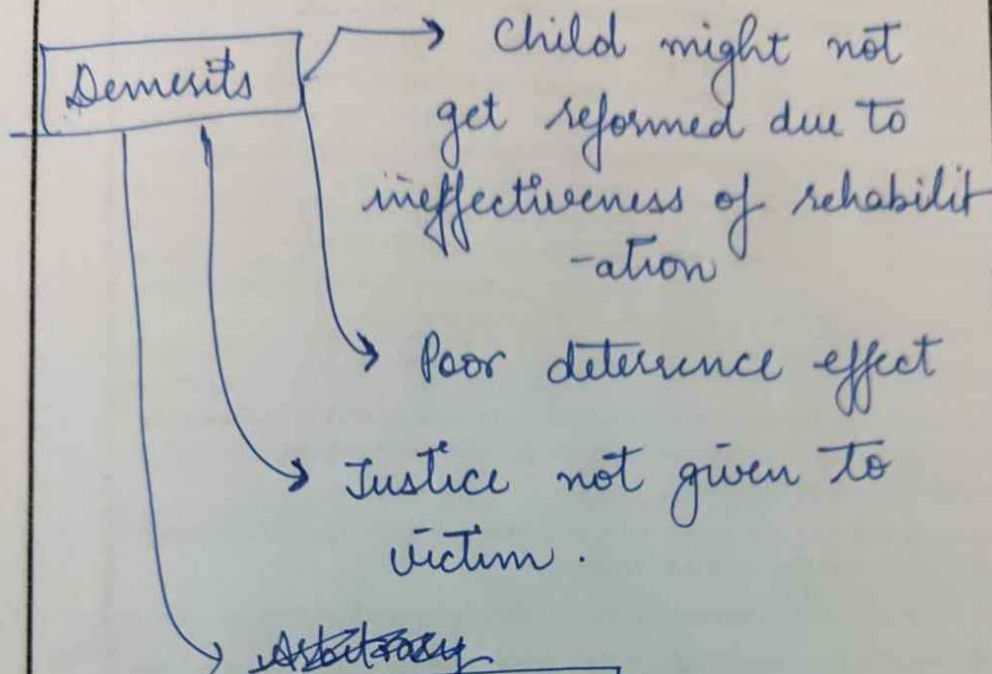 Demerits
Child might not
get reformed due to
ineffectiveness of rehabilit
-ation
Poor deterrence effect
Justice not given to
victim.